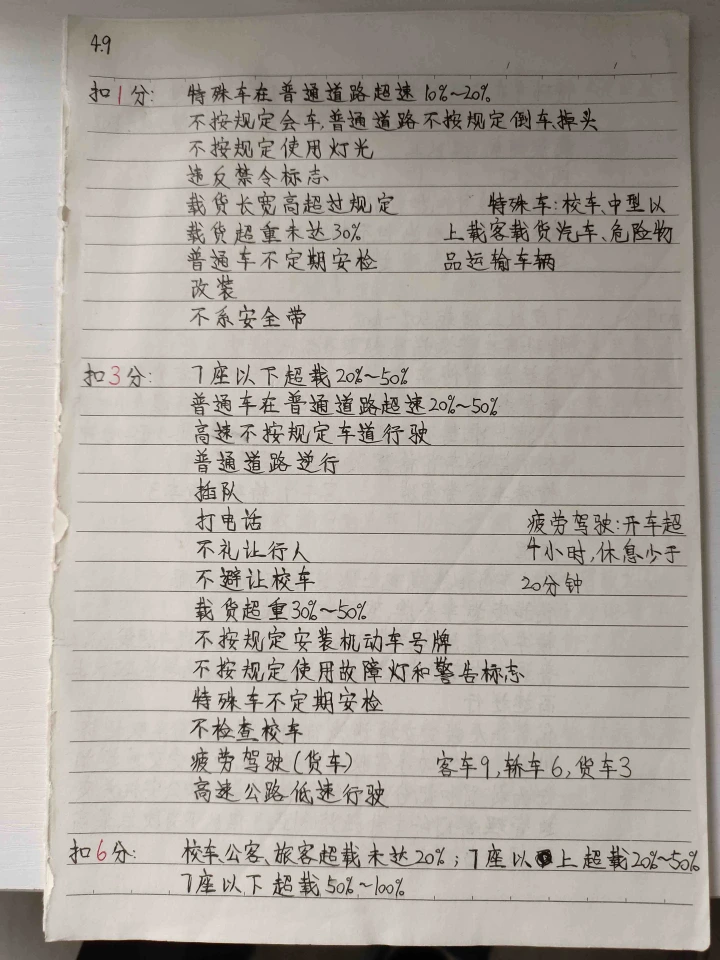 4.9
扣1分: 特殊车在普通道路超速10%~20%
不按规定会车,普通道路不按规定倒车、掉头
不按规定使用灯光
违反禁令标志
载货长宽高超过规定 特殊车:校车、中型以
载货超重未达30% 上载客载货汽车、危险物
普通车不定期安检 品运输车辆
改装
不系安全带
扣3分: 7座以下超载20%~50%
普通车在普通道路超速20%~50%
高速不按规定车道行驶
普通道路逆行
插队
打电话 疲劳驾驶:开车超
不礼让行人 4小时,休息少于
不避让校车 20分钟
载货超重30%~50%
不按规定安装机动车号牌
不按规定使用故障灯和警告标志
特殊车不定期安检
不检查校车
疲劳驾驶(货车) 客车9,轿车6,货车3
高速公路低速行驶
扣6分: 校车、公客、旅客超载未达20%;7座以上超载20%~50%
7座以下超载50%~100%